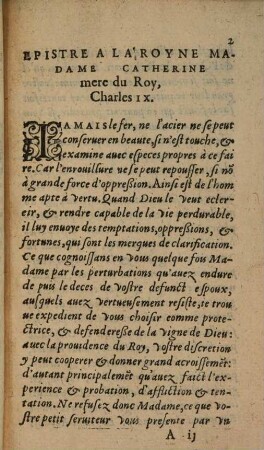 2
EPISTRE A LA ROYNE MA-
DAME CATHERINE
mere du Roy,
Charles IX.
IAMAIS le fer, ne l'acier ne se peut
conseruer en beaute, si n'est touche, &
examine auec especes propres à ce fai
re. Car l'enrouillure ne se peut repousser, si nō
à grande force d'oppresion. Ainsi est de l'hom
me apte à vertu. Quand Dieu le veut ecler-
eir, & rendre capable de la vie perdurable,
il luy enuoye des temptations, oppreßions, &
fortunes, qui sont les merques de clarification.
Ce que cognoissans en vous quelque fois Ma
dame par les perturbations qu'auez endure
de puis le deces de vostre defunct espoux,
ausquels auez vertueusement resiste, te trou
ue expedient de vous choisir comme prote-
ctrice, & defendereße de la vigne de Dieu:
auec la prouidence du Roy, vostre discretion
y peut cooperer & donner grand acroissemēt:
d'autant principalemēt qu'auez faict l'ex-
perience & probation, d'affliction & ten-
tation. Ne refusez donc Madame, ce que vo-
stre petit seruiteur vous presente par vn
A ij